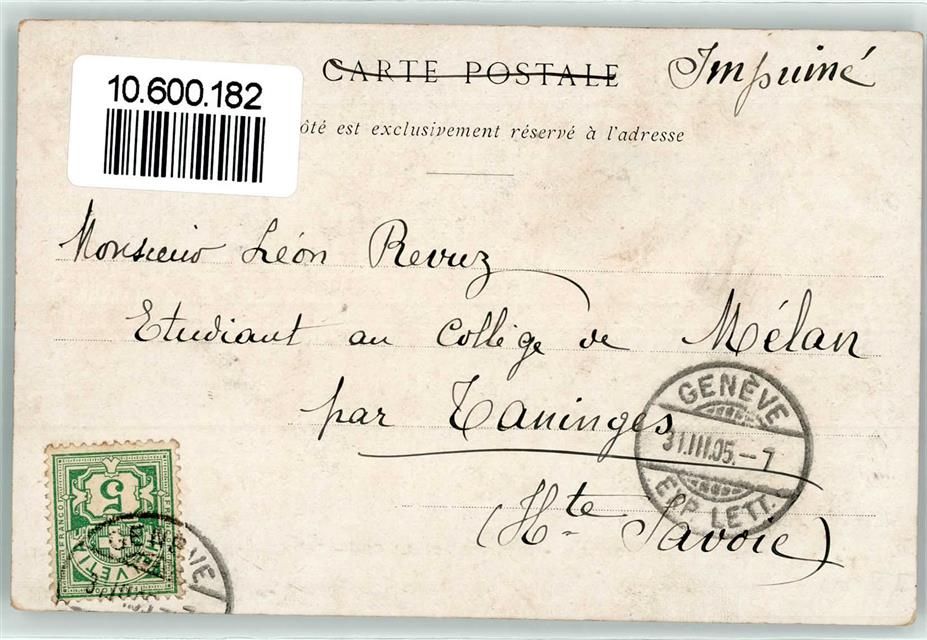 CARTE POSTALE Imprimé
10.600.182
ôté est exclusivement réservé à l'adresse
Monsieur Léon Revuz
Etudiant au Collège de Mélan
par Taninges
(Hte Savoie)
GENÈVE
31.III.05.-7
EXP. LETT.
5
FRANCO
HELVETIA
GENÈVE